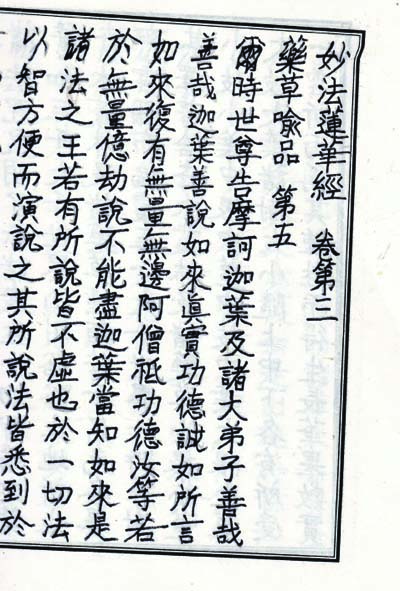 妙法蓮華經 卷第三
藥草喻品 第五
爾時世尊告摩訶迦葉及諸大弟子善哉
善哉迦葉善說如來眞實功德誠如所言
如來復有無量無邊阿僧祇功德汝等若
於無量億劫說不能盡迦葉當知如來是
諸法之王若有所說皆不虛也於一切法
以智方便而演說之其所說法皆悉到於